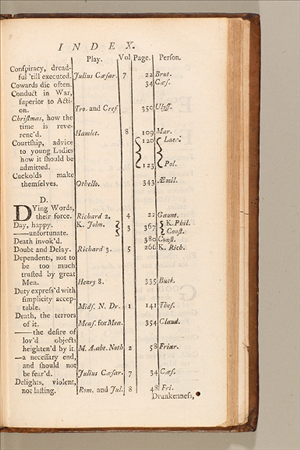 INDEX.
Play. Vol Page. Person.
Conſpiracy, dread-
ful 'till executed. Julius Cæſar. 7 22 Brut.
Cowards die often. 34 Cæſ.
Conduct in War,
ſuperior to Acti-
on. Tro. and Creſ. 350 Ulyſſ.
Chriſtmas, how the
time is reve-
renc'd. Hamlet. 8 109 Mar.
Courtſhip, advice 120 Laer.
to young Ladies
how it ſhould be
admitted. 123 Pol.
Cuckolds make
themſelves. Othello. 343 Æmil.
D.
DYing Words,
their force. Richard 2. 4 22 Gaunt.
Day, happy. K. John. 3 367 K. Phil.
——unfortunate. Conſt.
Death invok'd. 380 Conſt.
Doubt and Delay. Richard 3. 5 266 K. Rich.
Dependents, not to
be too much
truſted by great
Men. Henry 8. 335 Buck.
Duty expreſs'd with
ſimplicity accep-
table. Midſ. N. Dr. 1 141 Theſ.
Death, the terrors
of it. Meaſ. for Mea. 354 Claud.
——the deſire of
lov'd objects
heighten'd by it. M. A abt. Noth 2 58 Friar.
—a neceſſary end,
and ſhould not
be fear'd. Julius Cæſar. 7 34 Cæſ.
Delights, violent,
not laſting. Rom. and Jul. 8 48 Fri.
Drunkenneſs,